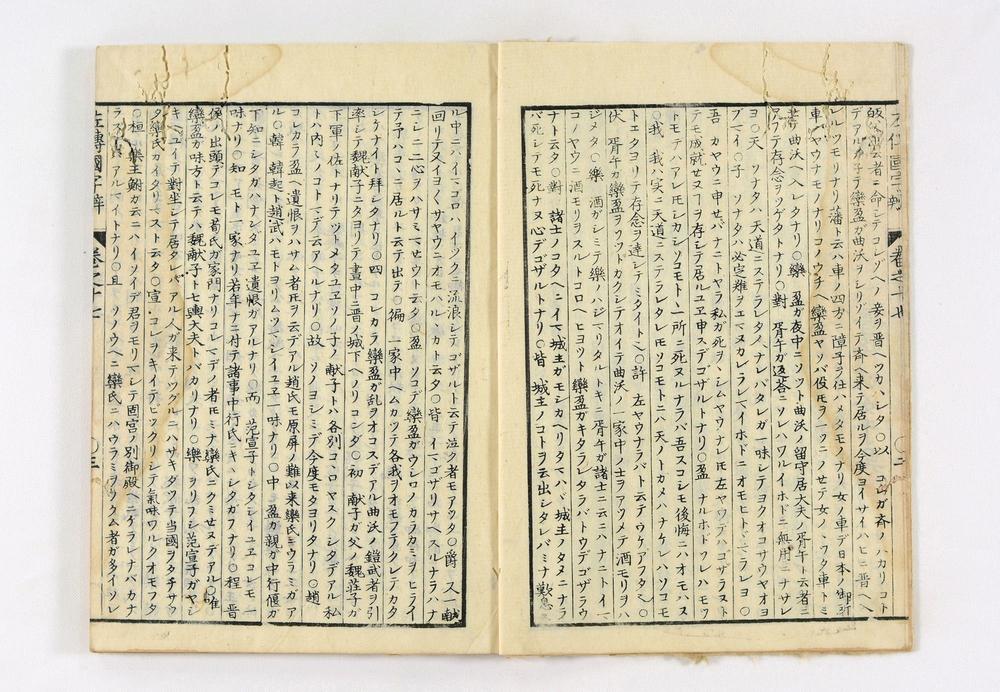 左傳國字辨 卷之十七
皈 云者ニ命シテコレツヘノ妾ヲ晋ヘツカハシタ〇以 コレガ斉ノハカリコト
デアル 子テ欒盈ガ曲沃ヲシリゾイテ斉ヘ来テ居ルヲ今度ヨイサイハヒニ晋ヘヘ
レルツモリナリ藩ト云ハ車ノ四方ニ障子ヲ仕ハメタモノナリ女ノ車デ日本ノ御所
車ノヤウナモノナリコノウチヘ欒盈ヤソバ役圧ヲ一ツニノセテ女ノノフタ車トミ
曲沃ヘ入レタナリ〇欒 盈ガ夜中ニソツト曲沃ノ留守居大夫ノ胥午ト云者ニ
アフテ存念ヲツゲタナリ〇對 胥午ガ返答ニソレハワルイホドニ無用ニナサレ
ヨ〇天 ソナタハ天道ニステラレタ人ナレバタレガ一味シテヨクオコサウヤオヨ
ブマイ〇子 ソナタハ必定難ヲエマヌカレラレマイホドニオモヒトドマラレヨ〇
吾 カヤウニ申セバナゼニトヤラ私ガ死ヲヽシムヤウナレ圧左ヤウデハゴザラヌト
トモテハアレ圧シカシソコモト一所ニ死ヌルナラバ吾スコシモ後悔ニハオモハヌ
〇我 我ハ実ニ天道ニステラレタレ圧ソコモトニハ天ノトカメハナケレハソコモ
トエタヨリテ存念ヲ達シマシタイトヘ〇許 左ヤウナラバト云テウケアフタ〇
伏 胥午カ欒盈ヲソツトカクシテオイテ曲沃ノ一家中ノ士ヲアツメテ酒モリヲハ
ジメタ〇樂 酒ガシミテ樂ノハジマリタルトキニ胥午ガ諸士ニ云ニハナニトイマ
コノヤウニ酒モリヲスルトコロヘヒヨツト欒盈ガキタラレタラバトウデゴザラウ
ナト云タ〇對 諸士ノコタヘニイマ城主ガモシカヘリタマハヾ城主ノタメニナラ
バ死シテモ死ナヌ心デゴザルトナリ〇皆 城主ノコトヲ云出シタレバミナ歎息
ル中ニハイマコロハイツクニ流浪シテゴザルト云テ泣ク者モアツタ〇爵 又一献
回リテヌイヨクサヤウニオモハルヽカト云タ〇皆 イマゴザリサヘスルナラハナ
ニシニ二心ヲハサミマセウト云タ〇盈 ソコデ欒盈ガウシロノカラカミヲヒライ
テ予ハコヽニ居ルト云テ出テ〇徧 一家中ヘムカツテ各我ヲオモフテクレテカタ
シケナイト拜シタナリ〇四 コレカラ欒盈ガ乱ヲオコスデアル曲沃ノ鎧武者ヲ引
率シテ魏献子ニタヨリテ晝中ニ晋ノ城下ヘノリコンダ〇初 献子ガ父ノ魏莊子ガ
下軍ノ佐トナリテツトメタユヱソノ子ノ献子トハ各別コヽロヤスクシタデアル私
トハ内々ノコトマデ云アヘルナリ〇故 ソノヨシミデ今度モタヨリタナリ〇趙
コレカラ盈ヘ遺恨ヲハサム者圧ヲ云デアル趙氏モ原屏ノ難以来欒氏ニウラミガア
ル〇韓 韓起ト趙武ハモトヨリムツマシイユヱ一味ナリ〇中 盈ガ親ガ中行偃ガ
下知ニシタガハナンダユヱ遺恨ガアルナリ〇而 范宣子トシタシイユヱコレモ一
味ナリ〇知 モト一家ナリ若年ナニ付テ諸事中行氏ニキヽシタガフナリ〇程 晋
侯ノ出頭デコレモ荀氏ガ家門ナリコレマデノ者圧ミナ欒氏ニクミセヌデアル〇唯
欒盈ガ味方ト云テハ魏献子ト七輿大夫トバカリナリ〇樂 ヲリフシ范宣子ガヤシ
キヘユイテ對坐シテ居タレバアル人ガ来テツグルニハサキダツテ当國ヲタチサツ
タ欒氏ガイタリマスト云タ〇宣 コレヲキイテビツクリシテ氣味ワルクオモフタ
〇桓 樂王鮒ガ云ニハイソイデ君ヲモリマシテ固宮ノ別御殿ヘニゲラレナバカナ
ラズ アルマイトナリ〇且 ソノウヘニ欒氏ニハウラミヲフクム者ガ多イソレ
左傳國字辨 卷之十七